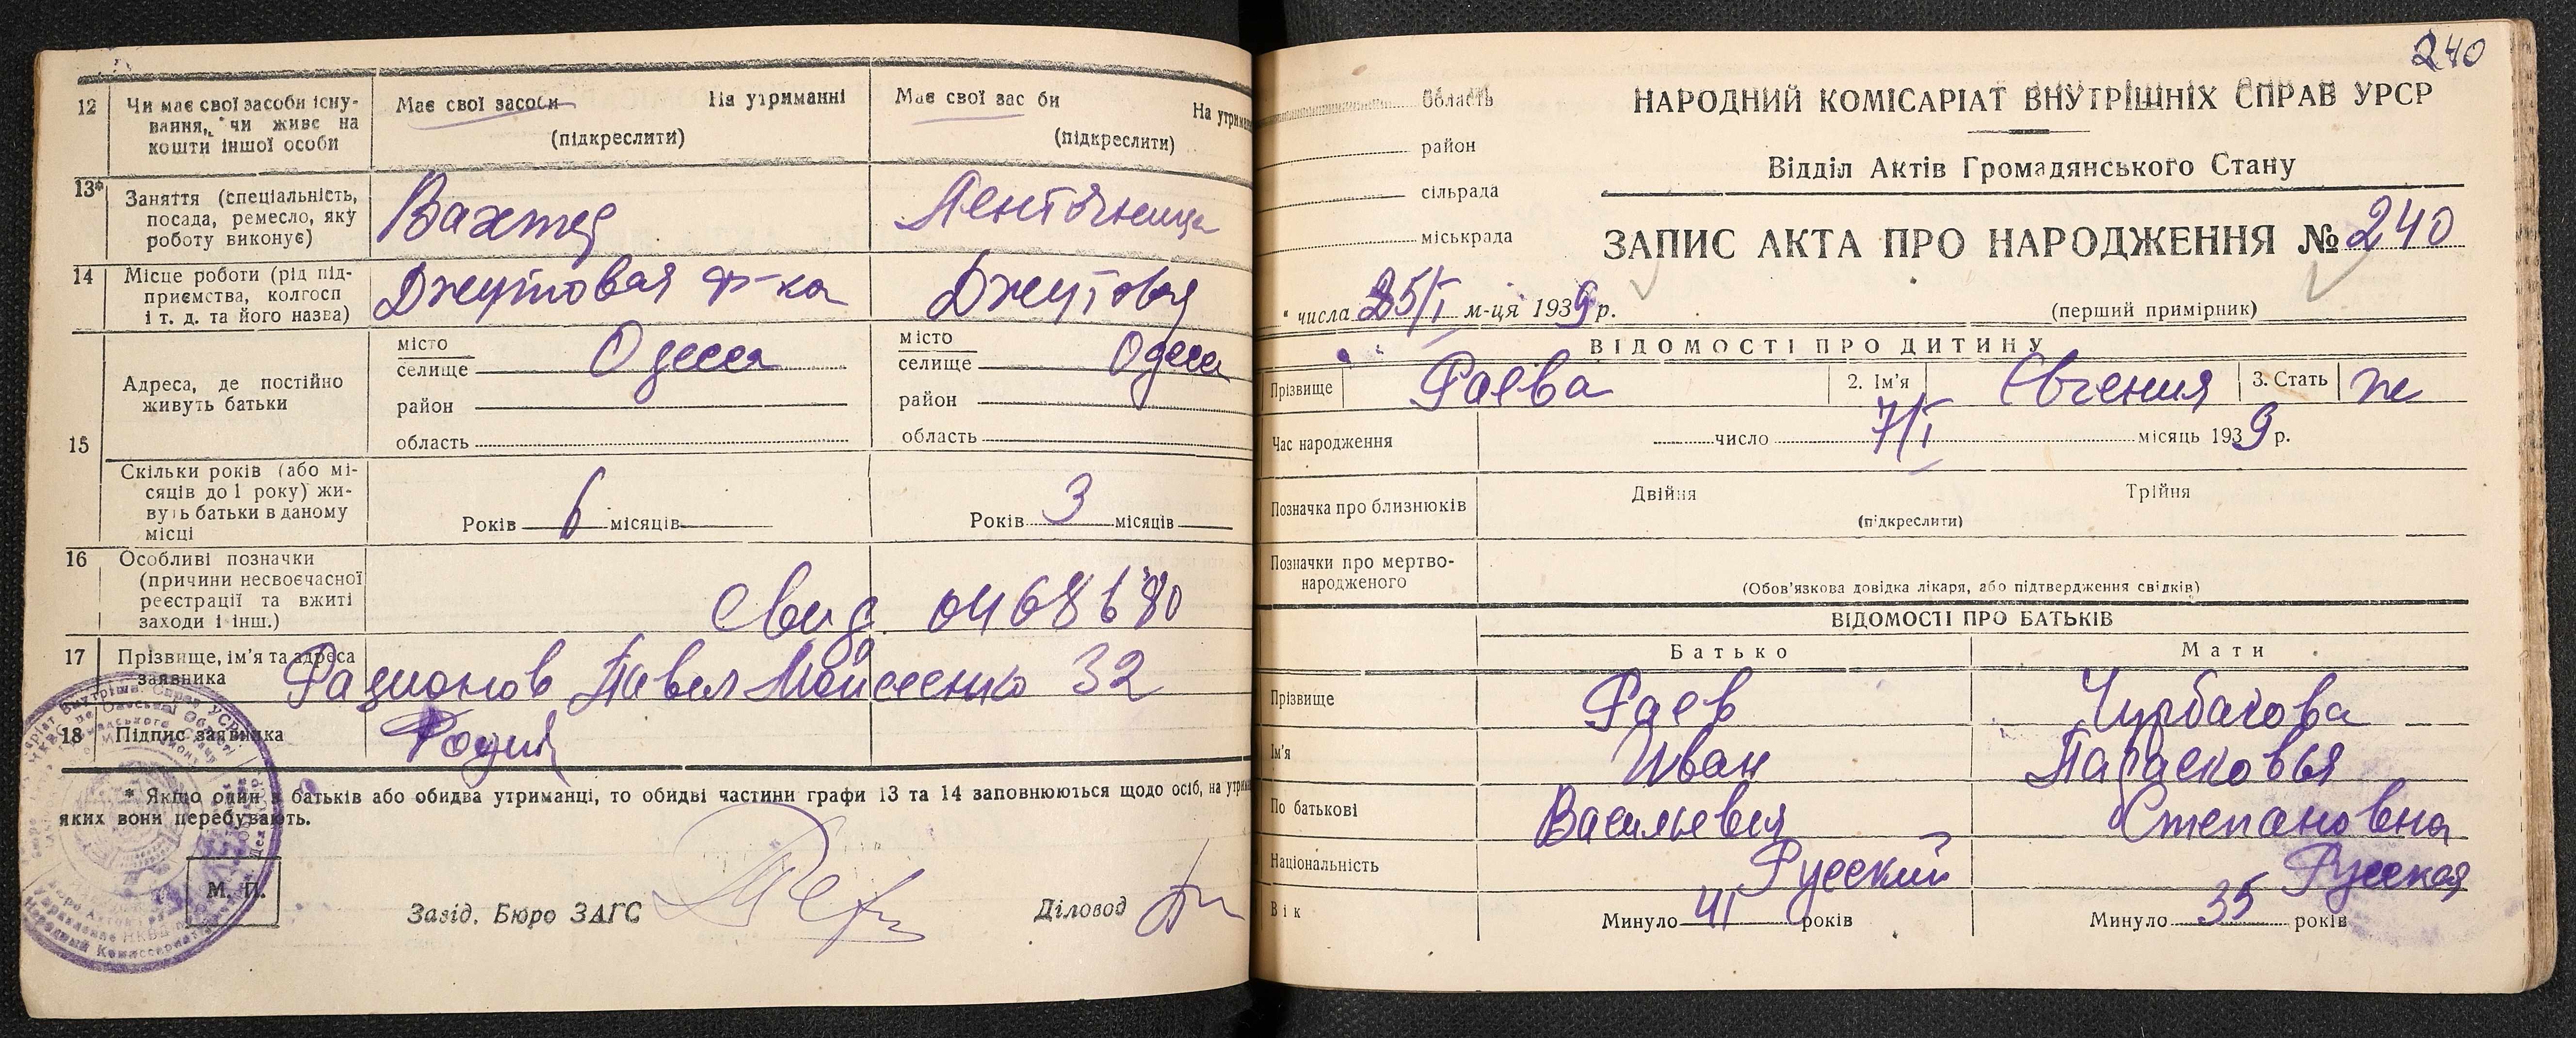 12 Чи має свої засоби існування, чи живе на кошти іншої особи
Має свої засоби На утриманні
(підкреслити)
Має свої зас би На утриман
(підкреслити)
13* Заняття (спеціальність, посада, ремесло, яку роботу виконує)
Вахтер
Ленточница
14 Місце роботи (рід підприємства, колгосп і т. д. та його назва)
Джутовая ф-ка
Джутовая
15 Адреса, де постійно живуть батьки
місто
селище Одесса
район
область
місто
селище Одесса
район
область
Скільки років (або місяців до 1 року) живуть батьки в даному місці
Років 6 місяців
Років 3 місяців
16 Особливі позначки (причини несвоєчасної реєстрації та вжиті заходи і інш.)
17 Прізвище, ім'я та адреса заявника
Радионов Павел Мойсеенко 32
18 Підпис заявника
* Якщо один з батьків або обидва утриманці, то обидві частини графи 13 та 14 заповнюються щодо осіб, на утрим
яких вони перебувають.
М. П.
Завід. Бюро ЗАГС
Діловод
240
Область
район
сільрада
міськрада
НАРОДНИЙ КОМІСАРІАТ ВНУТРІШНІХ СПРАВ УРСР
Відділ Актів Громадянського Стану
ЗАПИС АКТА ПРО НАРОДЖЕННЯ № 240
" числа 25/I м-ця 1939 р.
(перший примірник)
ВІДОМОСТІ ПРО ДИТИНУ
Прізвище Раева 2. Ім'я Евгения 3. Стать ж
Час народження число 7/I місяць 1939 р.
Позначка про близнюків Двійня Трійня
(підкреслити)
Позначки про мертвонародженого
(Обов'язкова довідка лікаря, або підтвердження свідків)
ВІДОМОСТІ ПРО БАТЬКІВ
Батько Мати
Прізвище Раев Чурбакова
Ім'я Иван Парасковья
По батькові Васильевич Степановна
Національність Русский Русская
Вік Минуло 41 років Минуло 35 років